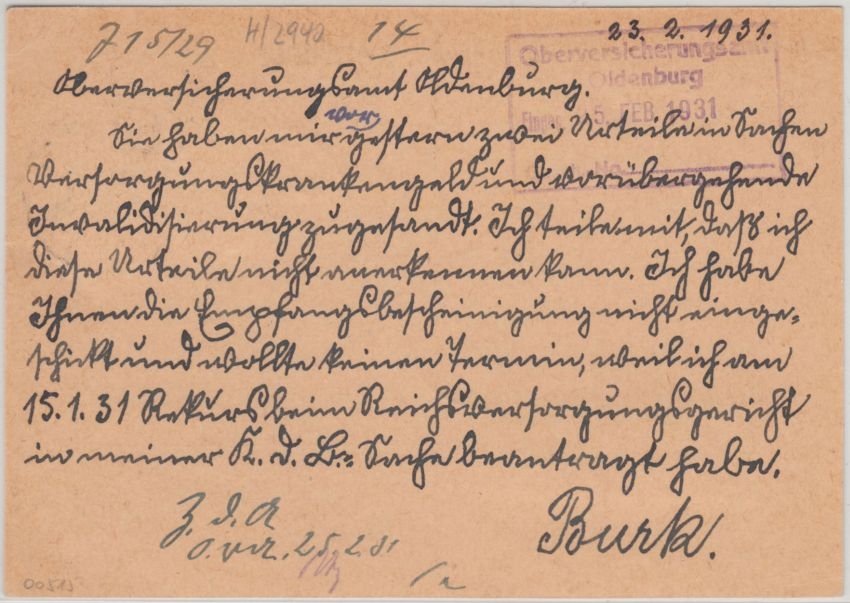 J 15/29 H/2940 14 23. 2. 1931.
Oberversicherungsamt
Oldenburg
5. FEB. 1931
Oberversicherungsamt Oldenburg.
vor
Sie haben mir gestern zwei Urteile in Sachen
Versorgungskrankengeld und vorübergehende
Invalidisierung zugesandt. Ich teile mit, daß ich
diese Urteile nicht anerkennen kann. Ich habe
Ihnen die Empfangsbescheinigung nicht einge-
schickt und wollte keinen Termin, weil ich am
15.1.31 Rekurs beim Reichsversorgungsgericht
in meiner K. d. B.= Sache beantragt habe.
Burk.
Z. d. A
25.2.31
00515